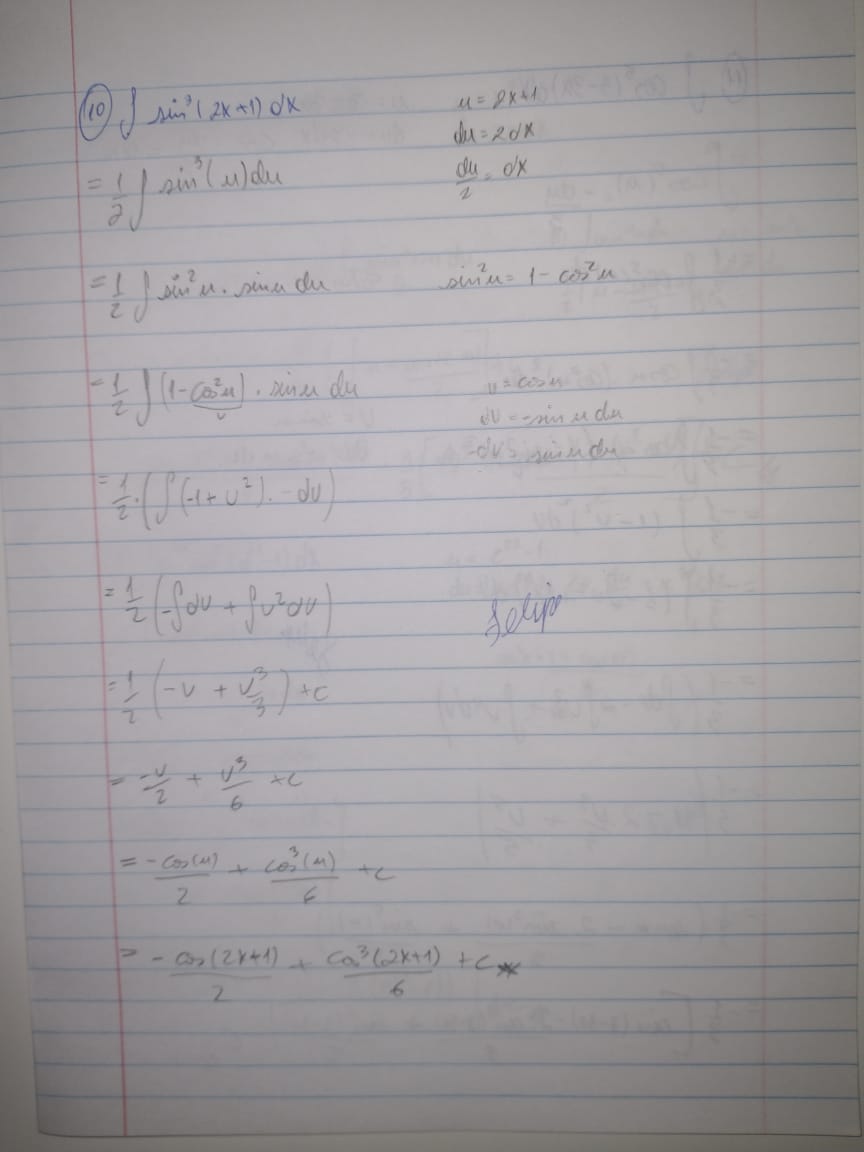 10 ∫ sin³(2x+1) dx u = 2x+1
du = 2dx
= 1/2 ∫ sin³(u) du du/2 = dx
= 1/2 ∫ sin²u · sinu du sin²u = 1 - cos²u
= 1/2 ∫ (1-cos²u) · sinu du v = cosu
v dv = -sin u du
-dv = sinu du
= 1/2 · (∫ (-1+v²) · -dv)
= 1/2 (-∫dv + ∫v²dv)
= 1/2 (-v + v³/3) + c
= -v/2 + v³/6 + c
= -cos(u)/2 + cos³(u)/6 + c
= -cos(2x+1)/2 + cos³(2x+1)/6 + c